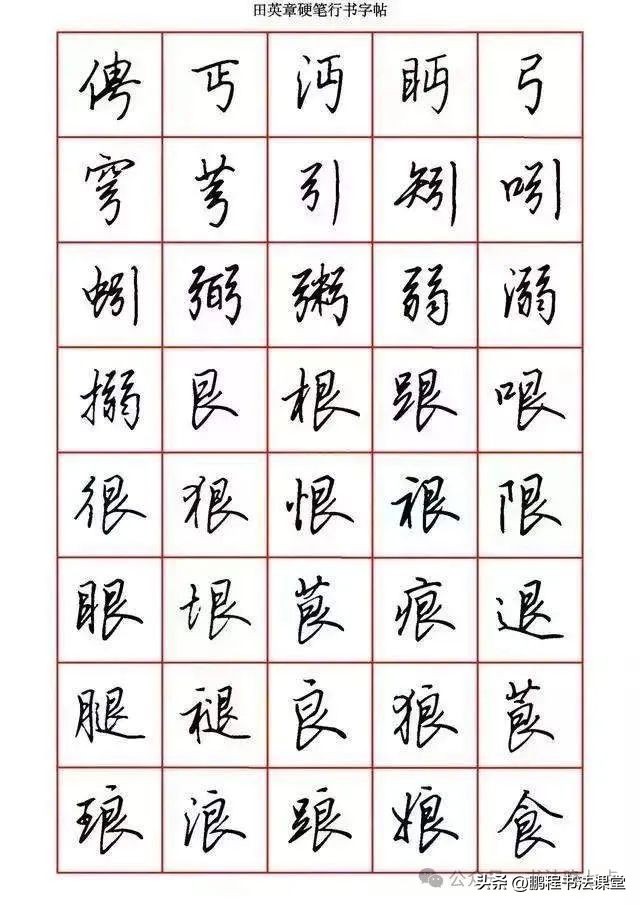 田英章硬笔行书字帖
俜 丐 沔 眄 弓
穹 芎 引 矧 吲
蚓 弼 粥 弱 溺
搦 艮 根 跟 哏
很 狠 恨 裉 限
眼 垠 茛 痕 退
腿 褪 良 狼 莨
琅 浪 踉 娘 食
公众号
头条 @鹏程书法课堂